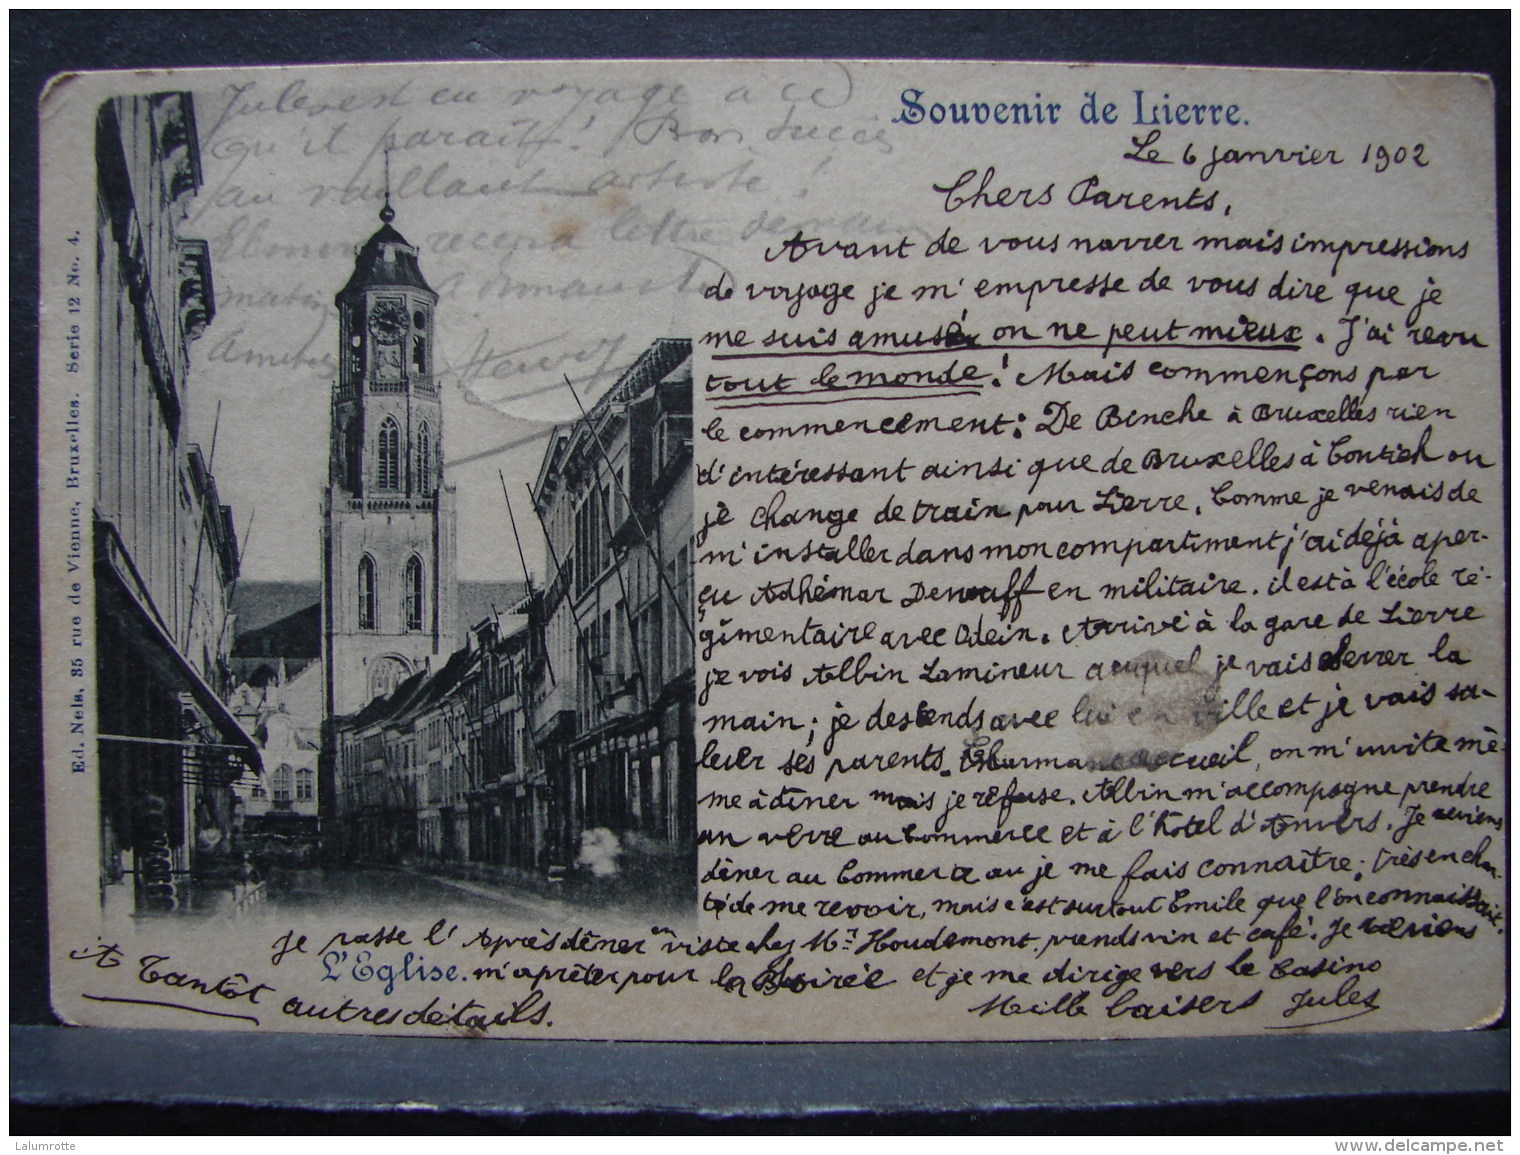 Souvenir de Lierre.
Le 6 janvier 1902
Chers Parents,
Avant de vous narrer mais impressions
de voyage je m'empresse de vous dire que je
me suis amusé on ne peut mieux. J'ai revu
tout le monde! Mais commençons par
le commencement: De Binche à Bruxelles rien
d'intéressant ainsi que de Bruxelles à Contich ou
je change de train pour Lierre. Comme je venais de
m'installer dans mon compartiment j'ai déjà aper-
çu Adhémar en militaire. il est à l'école ré-
gimentaire avec Odein. Arrivé à la gare de Lierre
je vois Albin Lamineur auquel je vais serrer la
main; je descends avec lui en ville et je vais sa-
luer ses parents. Charmant accueil, on m'invite mê-
me à dîner mais je refuse. Albin m'accompagne prendre
un verre au Commerce et à l'hotel d'Anvers. Je reviens
dîner au Commerce ou je me fais connaître; très enchan-
té de me revoir, mais c'est surtout Emile que l'on connaissait.
je passe l'Après dîner en visite chez Mr Houdemont, prends vin et café. Je reviens
L'Eglise. m'apprêter pour la Soirée et je me dirige vers le Casino
A Tantôt autres détails. Mille baisers Jules
Jules est en voyage à ce
qu'il paraît! Bon succès
au vaillant artiste!
recevra lettre demain
matin
Henry
Ed. Nels, 35 rue de Vienne, Bruxelles. Serie 12 No. 4.
Lalumrotte
www.delcampe.net